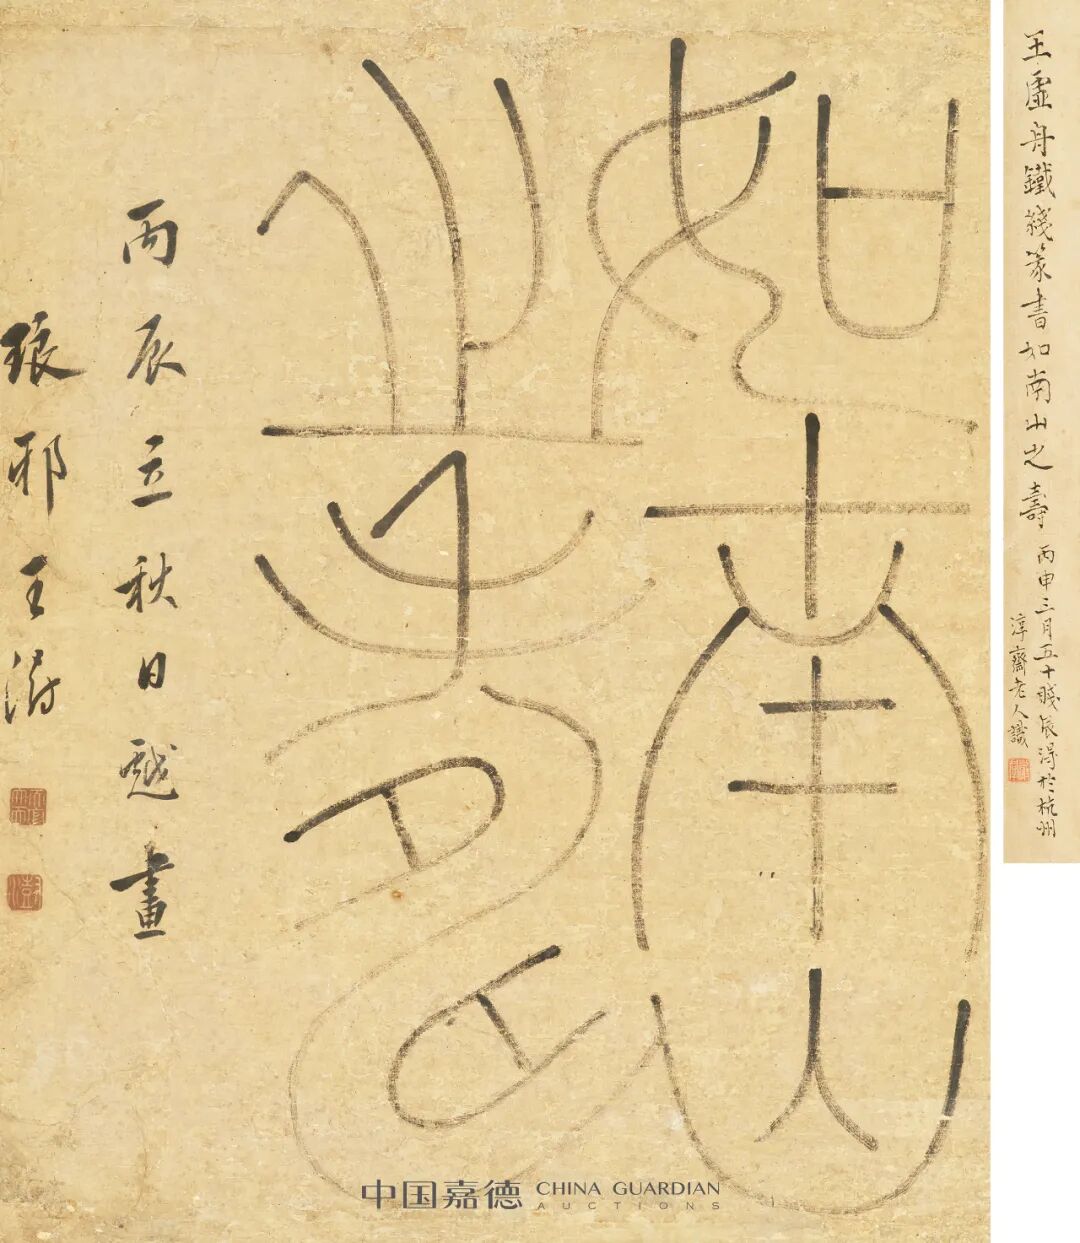 王虛舟鐵綫篆書如南山之壽
丙申三月五十賤辰得於杭州
淳齋老人識
如南山
之壽
丙辰立秋日戲畫
琅邪王澍
中国嘉德 CHINA GUARDIAN
AUCTIONS